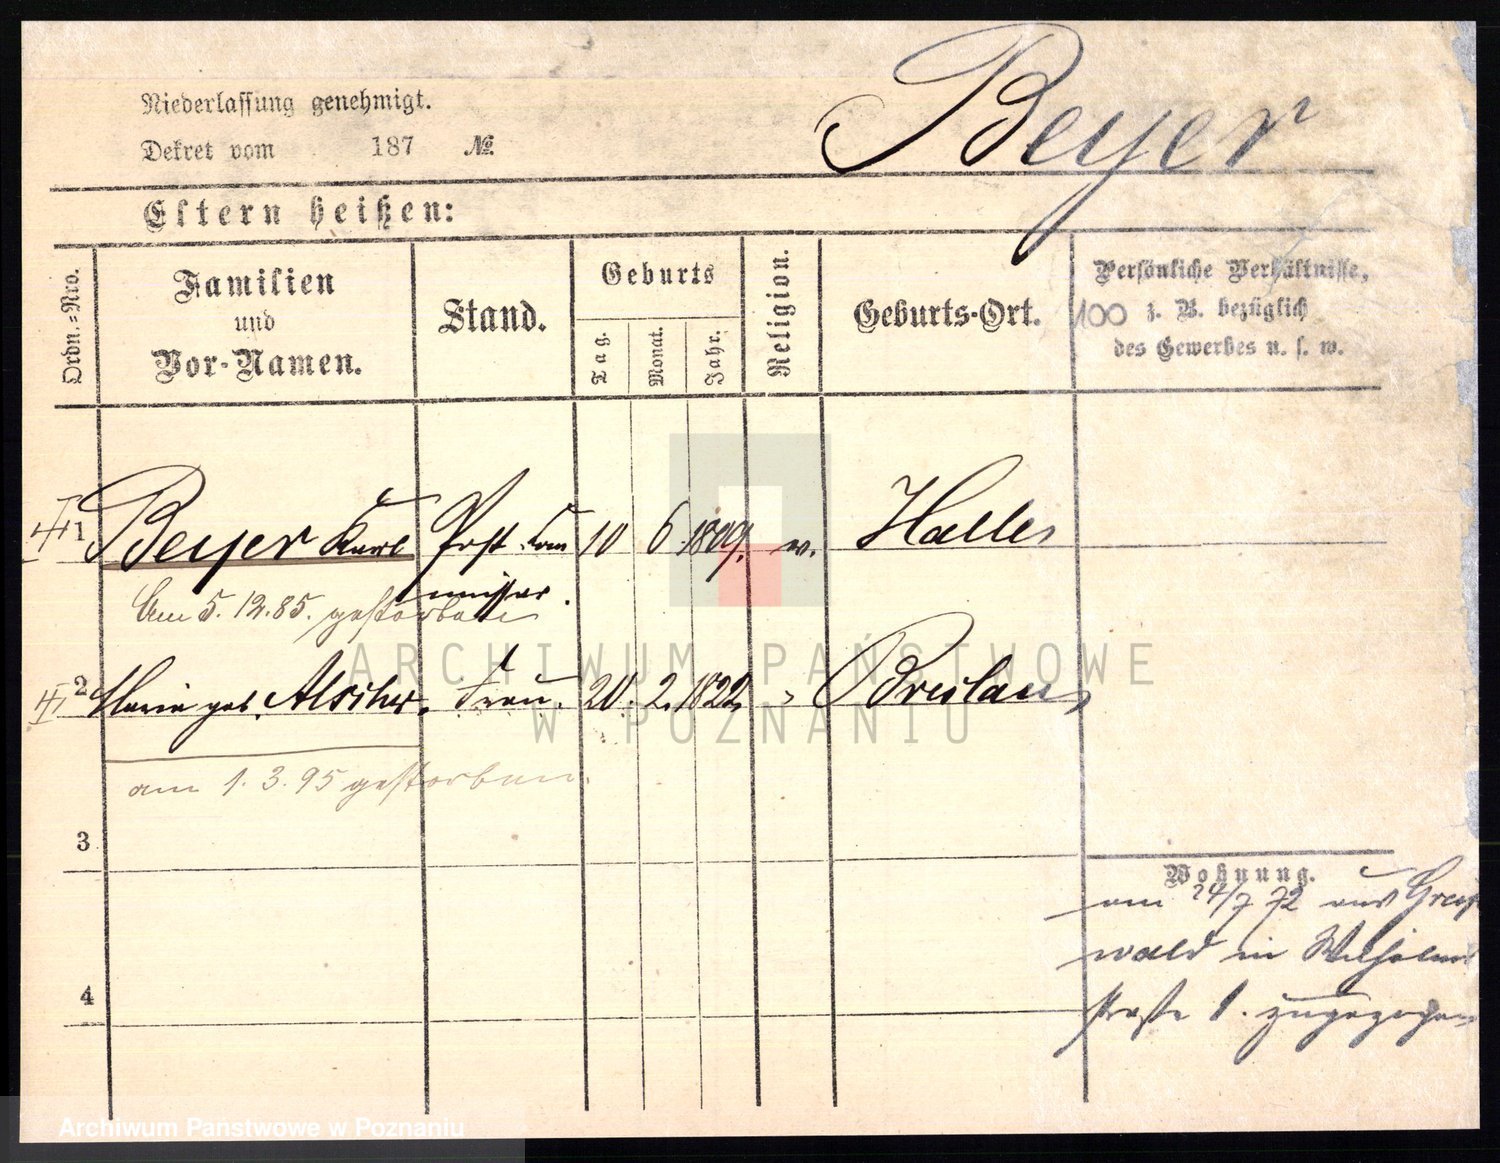 Beyer
Niederlassung genehmigt.
Dekret vom 187 №
Eltern heißen:
Ordn.-Nro.
Familien
und
Vor-Namen.
Stand.
Geburts
Tag.
Monat.
Jahr.
Religion.
Geburts-Ort.
Persönliche Verhältnisse,
100 z. B. bezüglich
des Gewerbes u. s. w.
1 Beyer Karl Post Com 10 6 1809. ev. Halle
missar.
Am 5.12.85. gestorben
2 Maria geb. Frau. 20. 2. 1822 Breslau
am 1.3.95 gestorben.
3
4
Wohnung.
am 24/7 72 aus Greifs
wald in Wilhelms
straße 1. zugezogen
ARCHIWUM PAŃSTWOWE
W POZNANIU
Archiwum Państwowe w Poznaniu